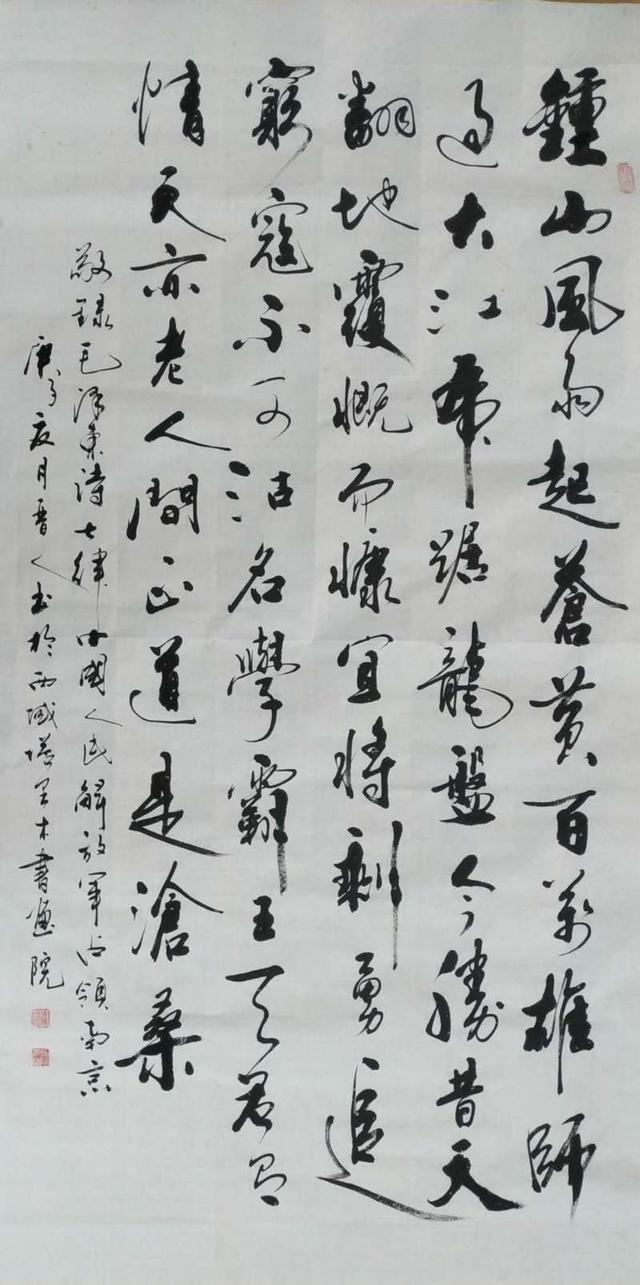 鍾山風雨起蒼黄百萬雄師
過大江虎踞龍盤今勝昔天
翻地覆慨而慷宜將剩勇追
窮寇不可沽名學霸王天若有
情天亦老人間正道是滄桑
敬録毛澤東詩七律中國人民解放軍占領南京
庚子夏月晋人書於西域塔里木書画院